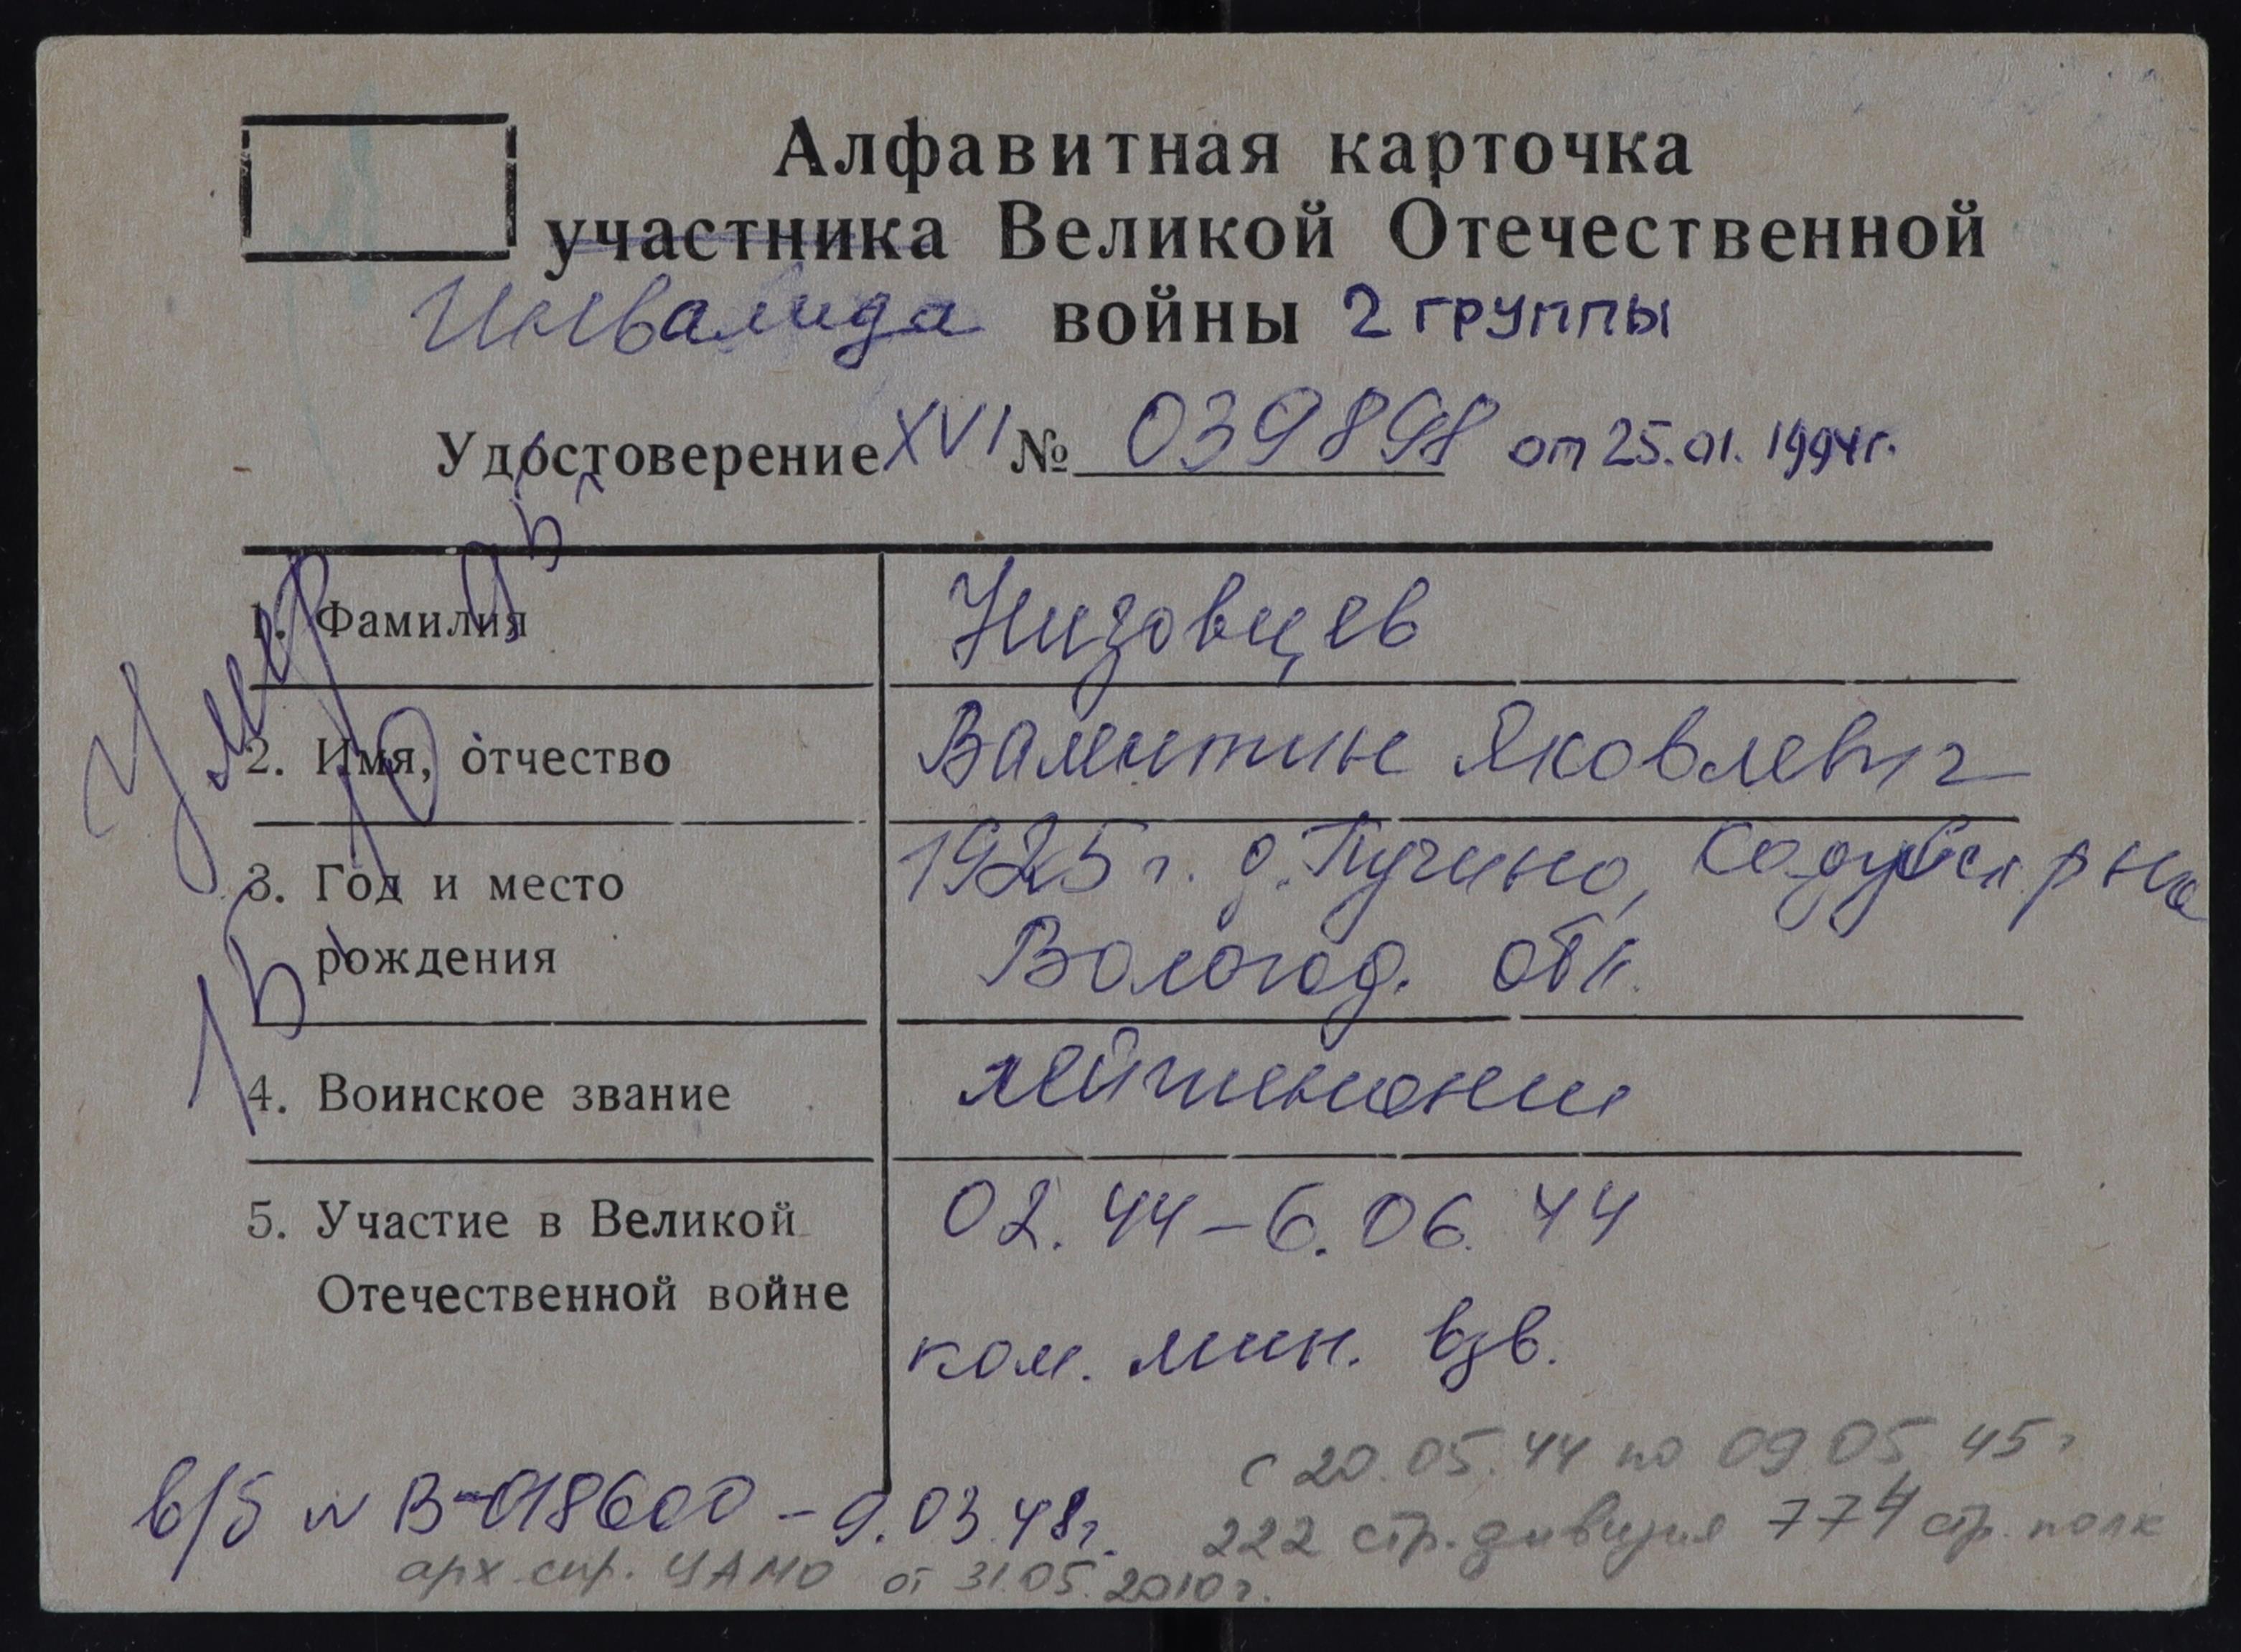 Алфавитная карточка
участника Великой Отечественной
Инвалида войны 2 группы
Удостоверение XVI № 039898 от 25.01.1994г.
Умер
1. Фамилия Низовцев
2. Имя, отчество Валентин Яковлевич
3. Год и место рождения 1925 г. д. Пучино, Кадуйск р-на
Вологод. обл.
4. Воинское звание лейтенант
5. Участие в Великой Отечественной войне 02.44-6.06.44
ком. мин. взв.
с 20.05.44 по 09.05.45г
в/б № В-018600 - 9.03.48г.
222 стр. дивизия 774 стр. полк
арх. спр. ЦАМО от 31.05.2010г.